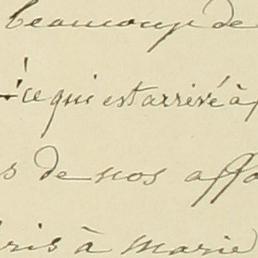 beaucoup de
ce qui est arrivé à
de nos
à Marie